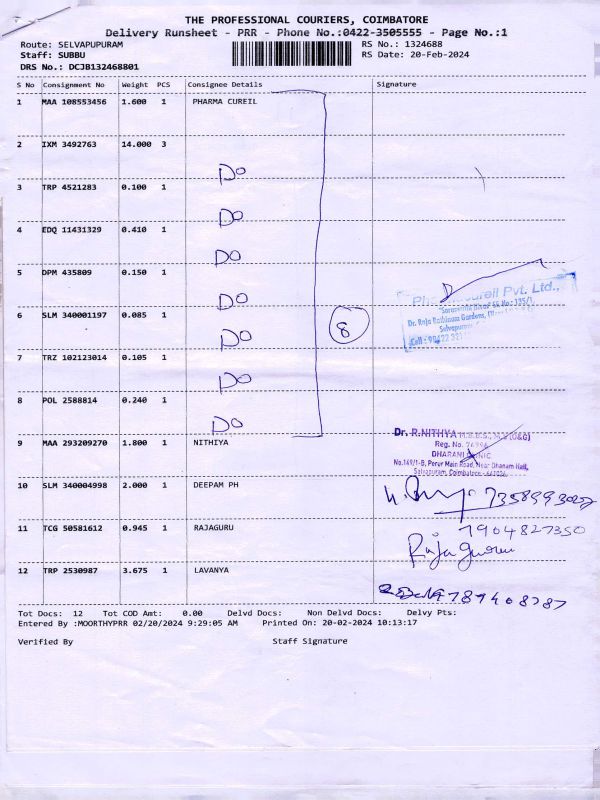 THE PROFESSIONAL COURIERS, COIMBATORE
Delivery Runsheet - PRR - Phone No.:0422-3505555 - Page No.:1
Route: SELVAPUPURAM RS No.: 1324688
Staff: SUBBU RS Date: 20-Feb-2024
DRS No.: DCJB132468801
S No Consignment No Weight PCS Consignee Details Signature
1 MAA 108553456 1.600 1 PHARMA CUREIL
2 IXM 3492763 14.000 3
DO
3 TRP 4521283 0.100 1
DO
4 EDQ 11431329 0.410 1
DO
5 DPM 435809 0.150 1
DO
Pvt. Ltd.,
6 SLM 340001197 0.085 1
8
Dr. Raja Rathinam Gardens,
DO
Selvapuram
7 TRZ 102123014 0.105 1
DO
8 POL 2588814 0.240 1
DO
Dr. R.NITHYA M.B.B.S., (O&G)
9 MAA 293209270 1.800 1 NITHIYA
Reg. No.
DHARANI CLINIC
No.149/1-B, Perur Main Road, Near Dhanam Hall,
Selvapuram, Coimbatore
10 SLM 340004998 2.000 1 DEEPAM PH
11 TCG 50581612 0.945 1 RAJAGURU
7904827350
Rajaguru
12 TRP 2530987 3.675 1 LAVANYA
Tot Docs: 12 Tot COD Amt: 0.00 Delvd Docs: Non Delvd Docs: Delvy Pts:
Entered By :MOORTHYPRR 02/20/2024 9:29:05 AM Printed On: 20-02-2024 10:13:17
Verified By Staff Signature